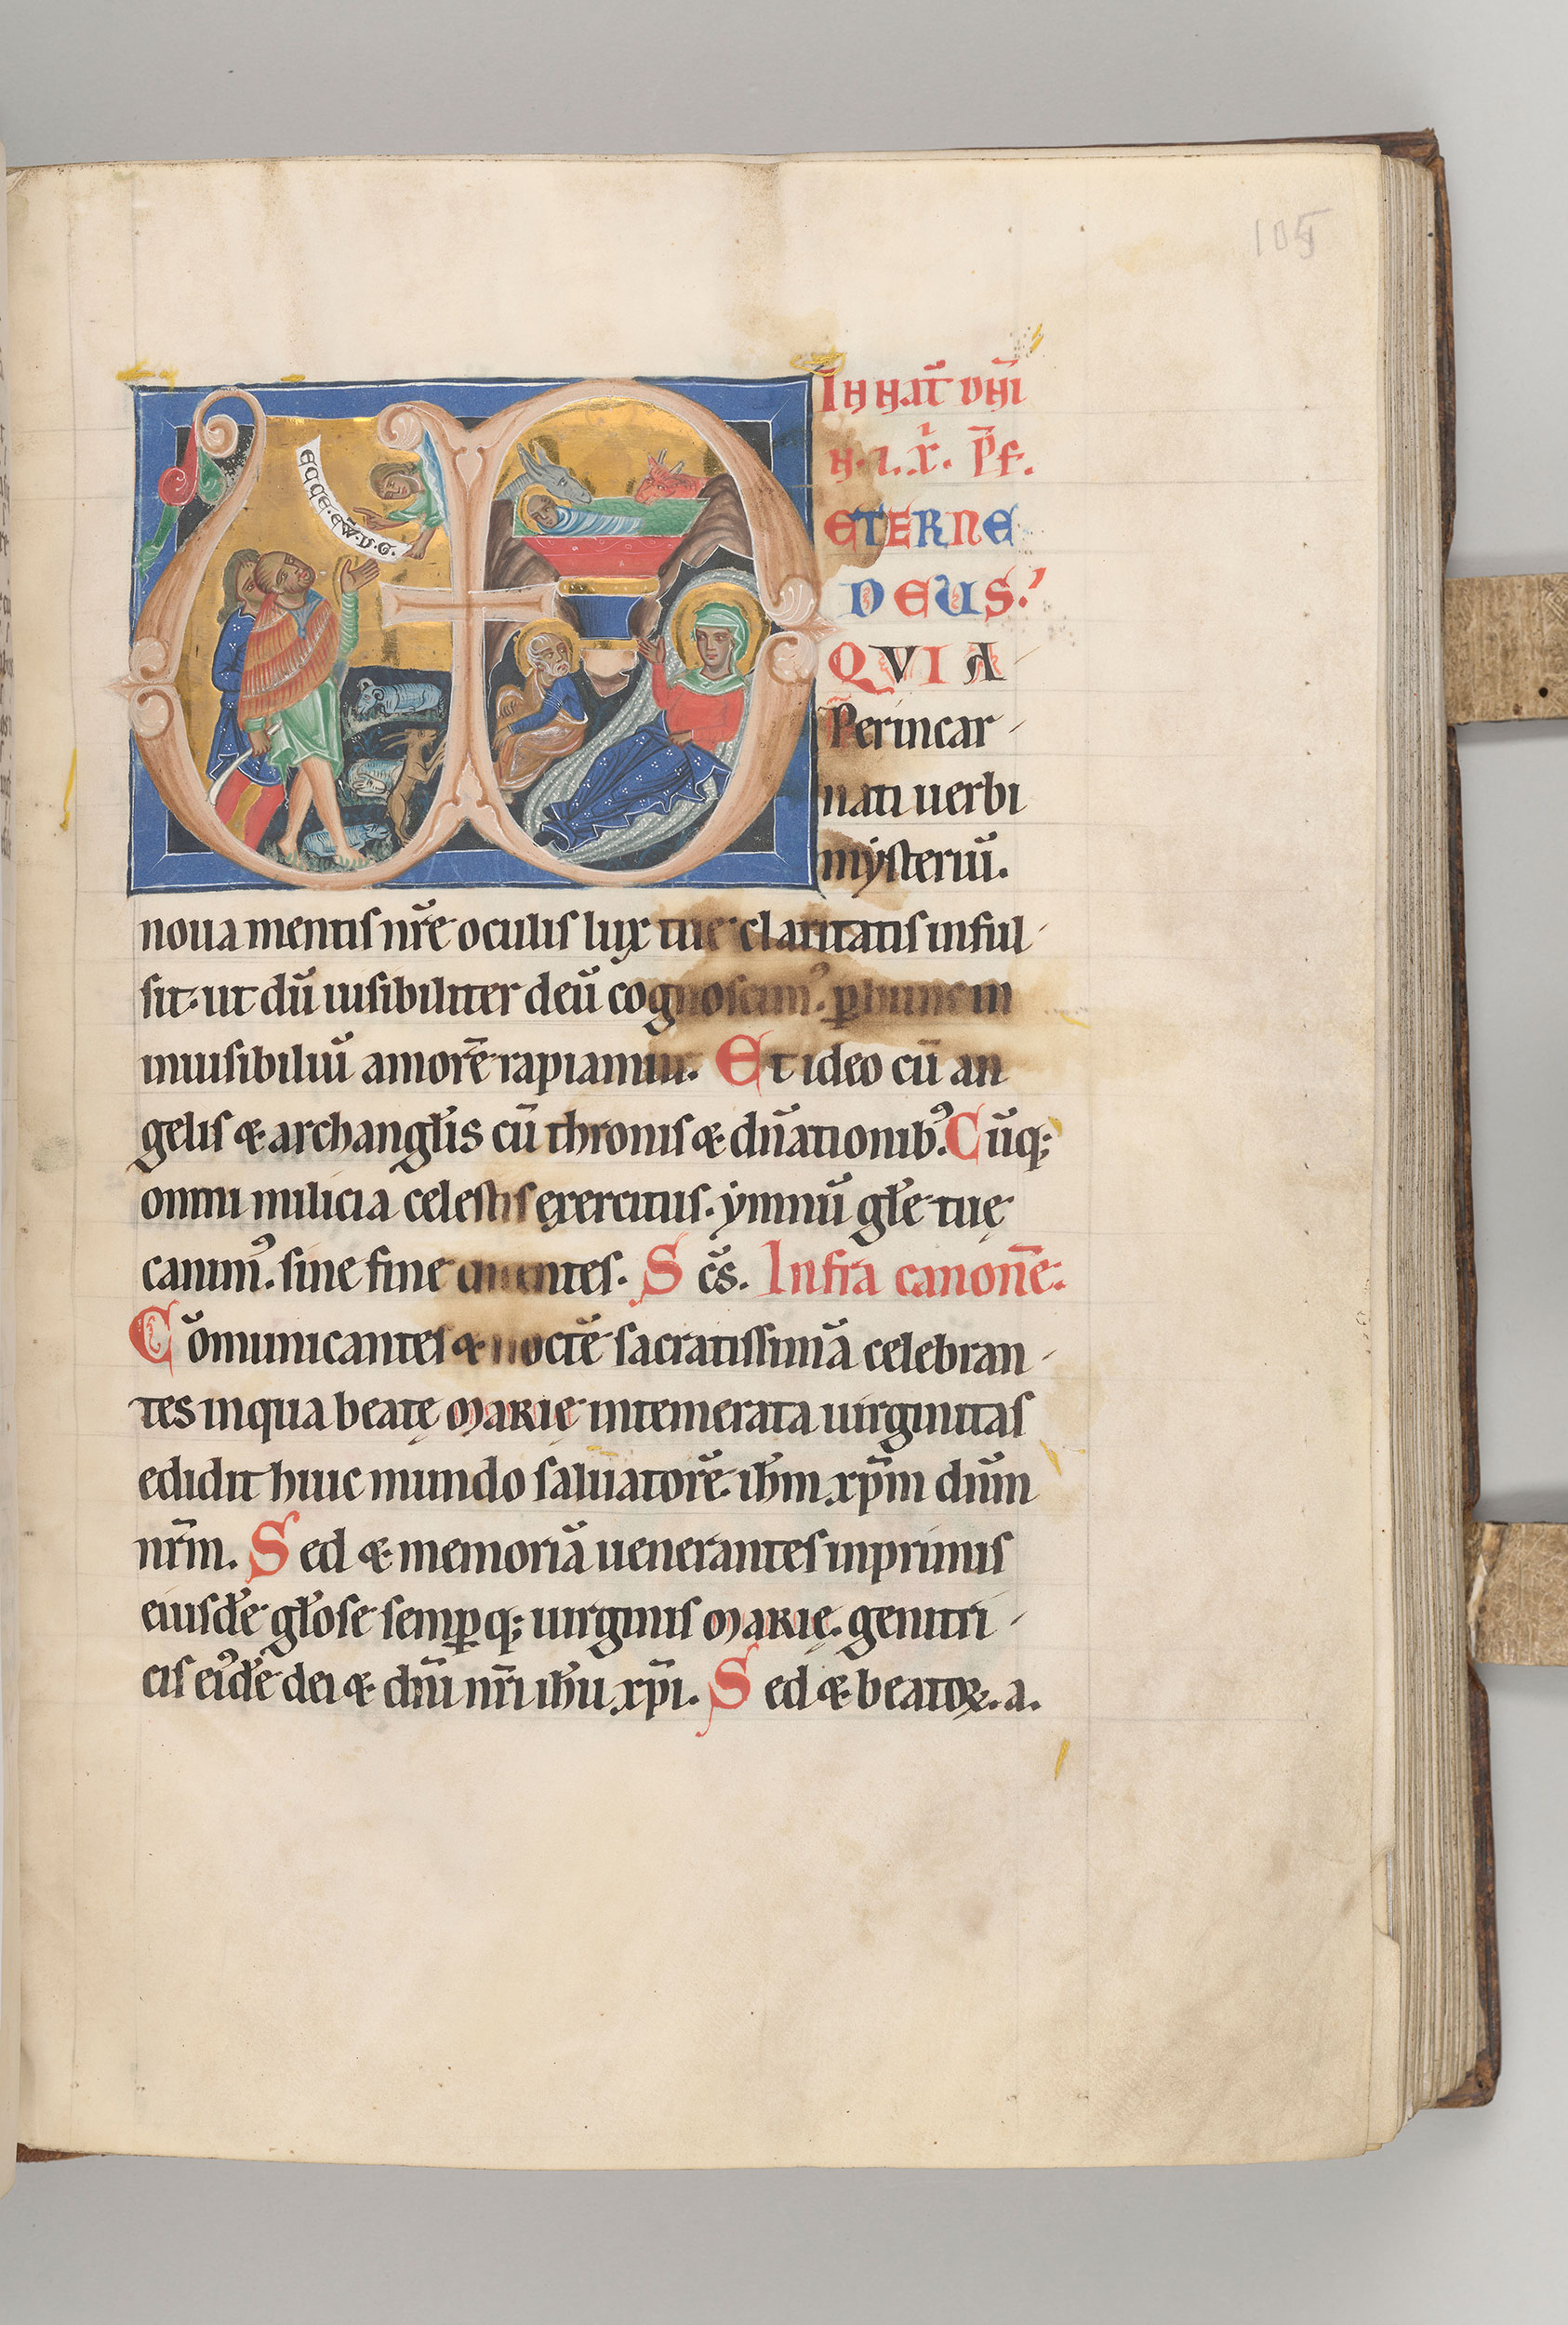 105
In nat̄ dn̄i
eterne
deus.
QVIA
Perincar
nati uerbi
mẏsteriū.
noua mentis nr̄e oculis lux tue claritatis inful
sit. ut dū uisibiliter deū cognoscim᷒. ꝑ hunc in
inuisibiliū amorē rapiamur. Et ideo cū an
gelis & archangl̄is cū thronis & dn̄ationib᷒. Cūq;
omni milicia celestis exercitus. ẏmnū gl̄e tuę
canim᷒. sine fine dicentes. Sc̄s. Infra canonē.
Cōmunicantes & noctē sacratissimā celebran
tes in qua beatę MARIę intemerata uirginitas
edidit huic mundo saluatorē. ih̄m xp̄m dn̄m
nr̄m. Sed & memoriā uenerantes inprimis
eiusdē gl̄ose semꝑq; uirginis MARIę. genitri
cis ei᷒dē dei & dn̄i nr̄i ih̄u xp̄i. Sed & beatoꝝ. a.